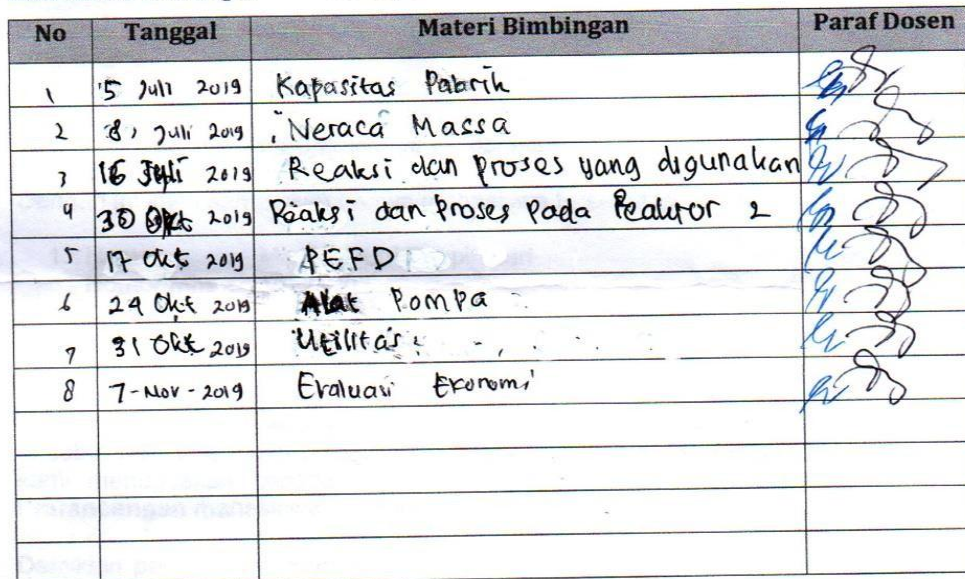 No Tanggal Materi Bimbingan Paraf Dosen
1 5 Juli 2019 Kapasitas Pabrik
2 8, Juli 2019 Neraca Massa
3 16 Juli 2019 Reaksi dan Proses yang digunakan
4 30 Okt 2019 Reaksi dan Proses Pada Reaktor 2
5 17 Okt 2019 PEFD
6 24 Okt 2019 Alat Pompa
7 31 Okt 2019 Utilitas
8 7-Nov-2019 Evaluasi Ekonomi